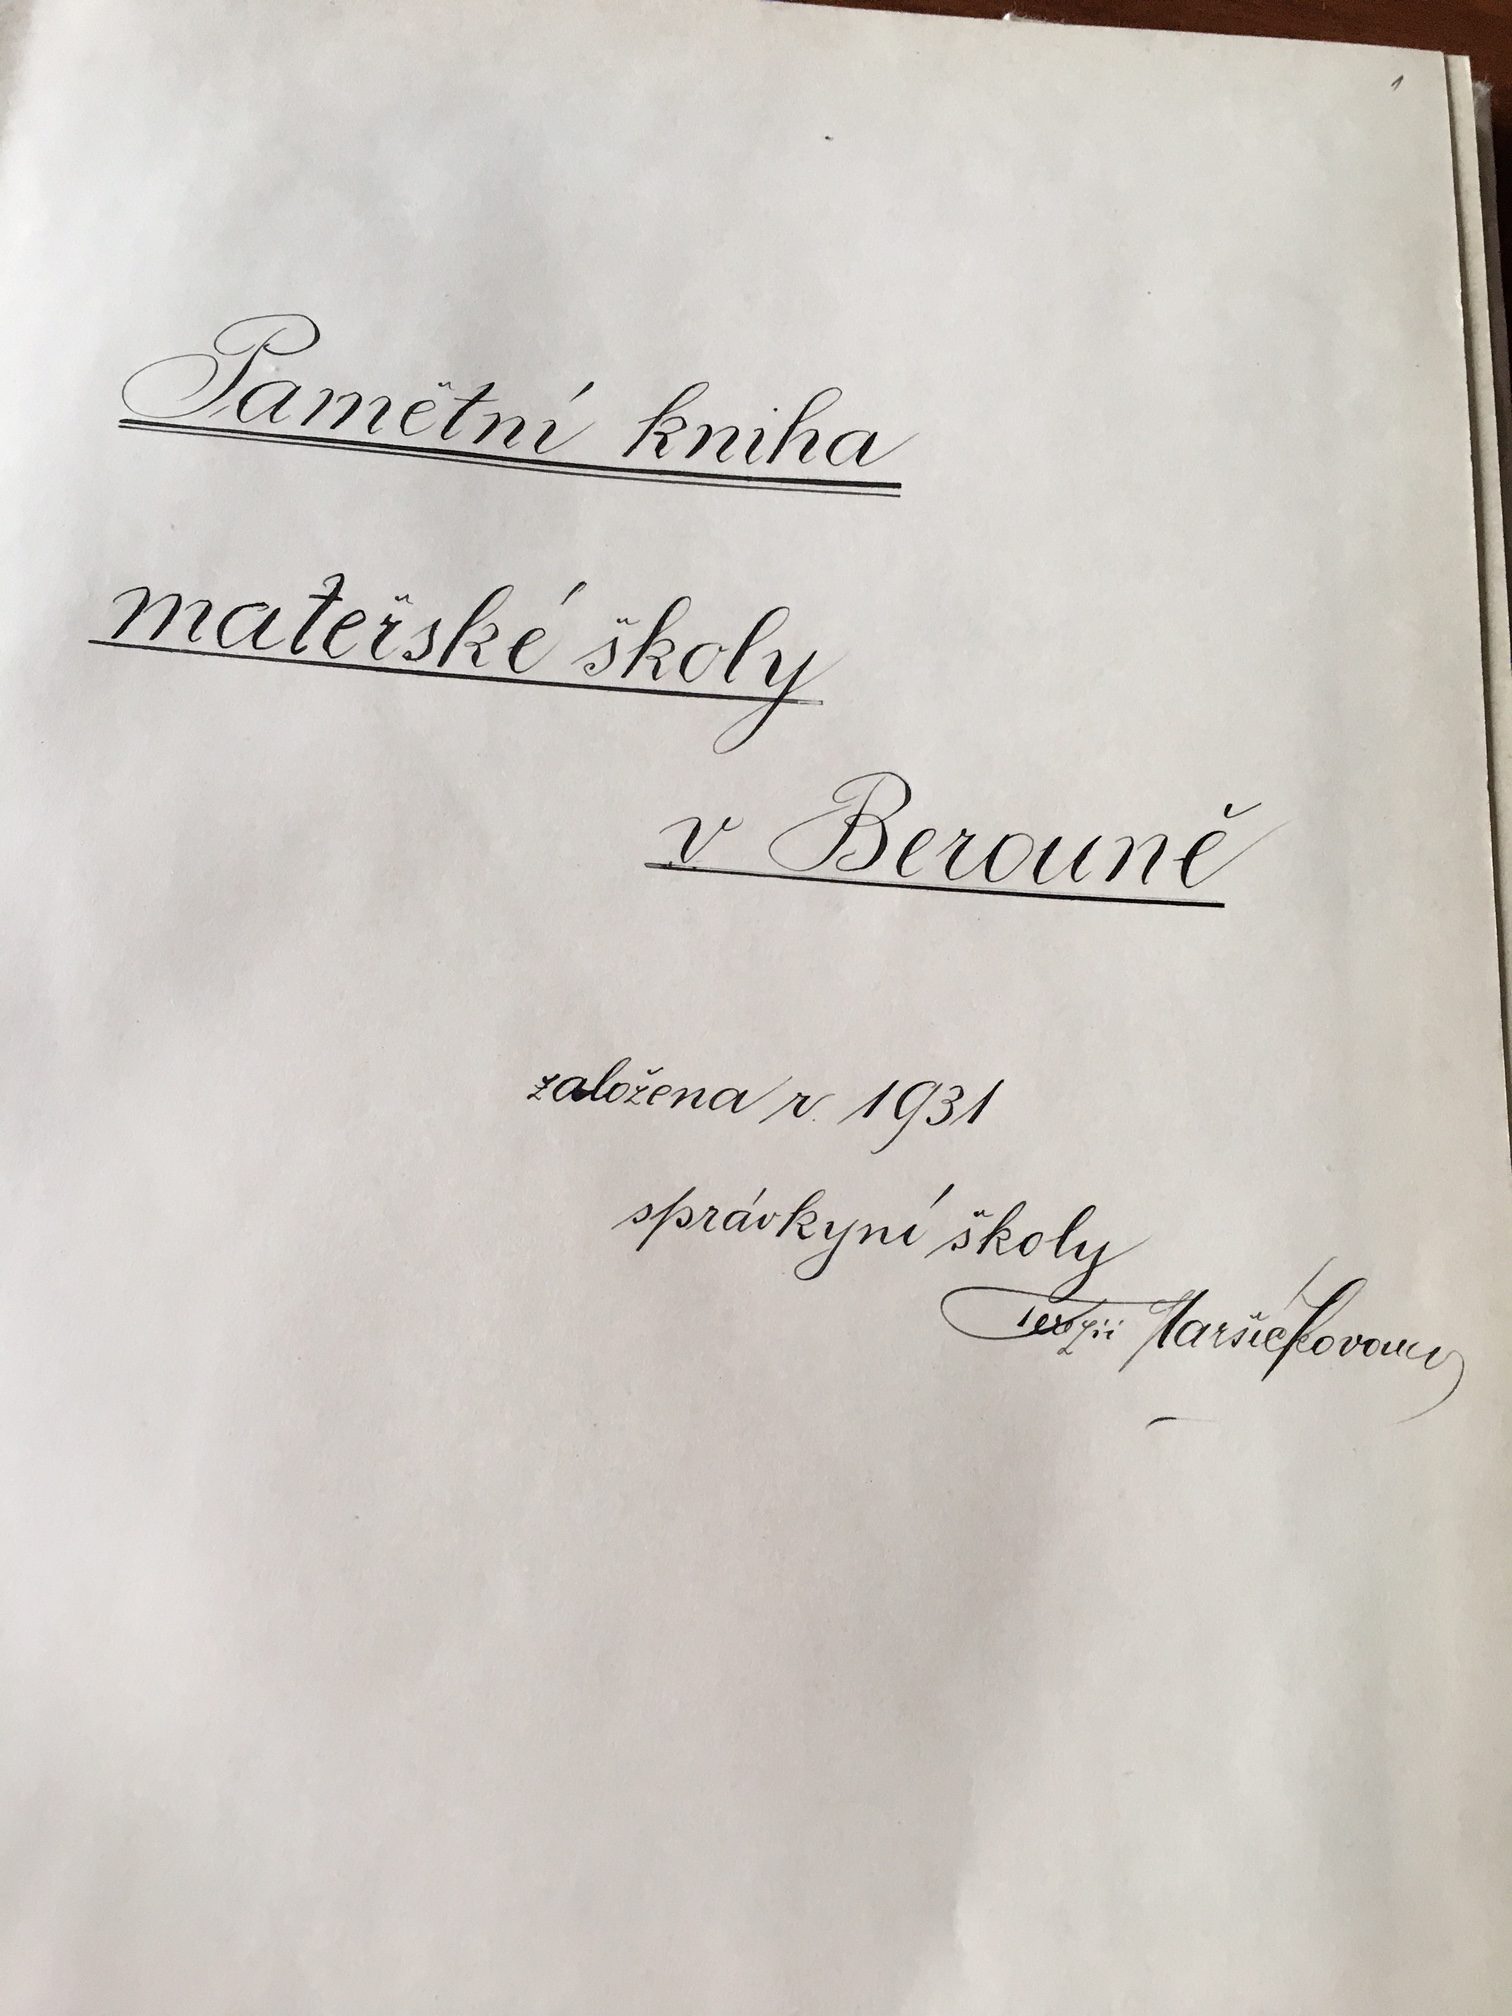 1
Pamětní kniha
mateřské školy
v Berouně
založena r. 1931
správkyní školy
Terezií Maršíčkovou